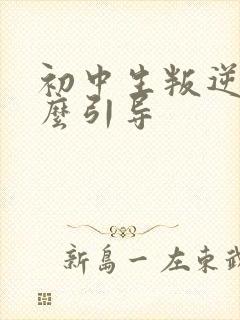 初中生叛逆
麼引导
新島一左東武